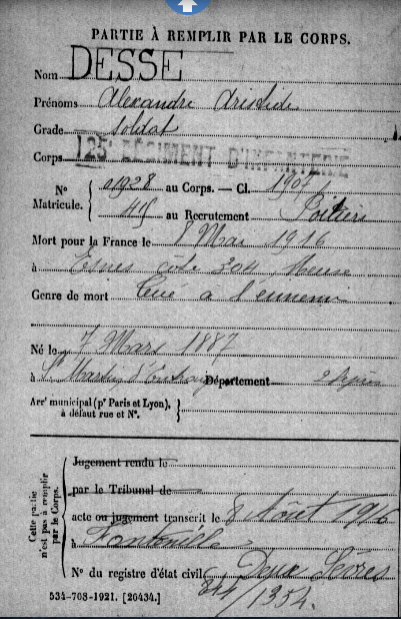 PARTIE À REMPLIR PAR LE CORPS.
Nom DESSE
Prénoms Alexandre Aristide
Grade Soldat
Corps 125e RÉGIMENT D'INFANTERIE
N° Matricule. { 01928 au Corps. — Cl. 1907
415 au Recrutement Poitiers
Mort pour la France le 8 Mai 1916
à Esnes côte 304 Meuse
Genre de mort Tué à l'ennemi
Né le 7 Mars 1887
à St Martin d' Département 2 Sèvres
Arrt municipal (pr Paris et Lyon), à défaut rue et N°. }
Cette partie n'est pas à remplir par le Corps.
Jugement rendu le
par le Tribunal de
acte ou jugement transcrit le 8 Août 1916
à
Deux Sèvres
N° du registre d'état civil 
534-708-1921. [26434.]